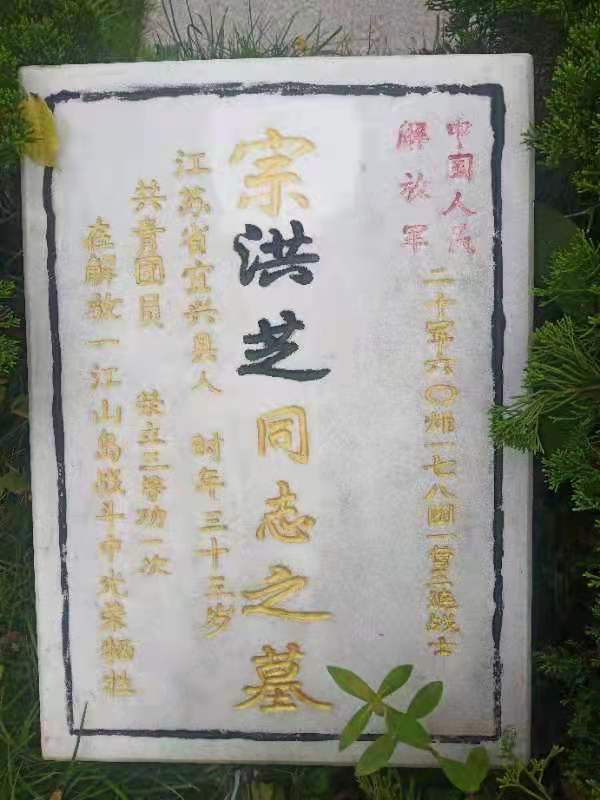 中国人民
解放军
二十军六〇师一七八团一营三连战士
宗洪芝同志之墓
江苏省宜兴县人 时年三十三岁
共青团员 荣立三等功一次
在解放一江山岛战斗中光荣牺牲